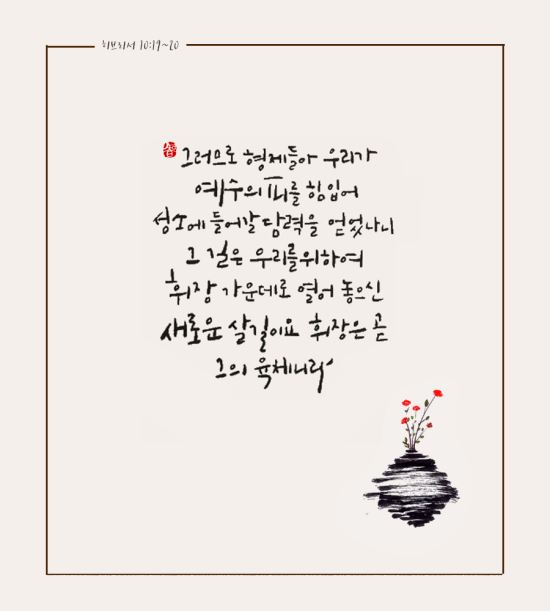 히브리서 10:19~20
그러므로 형제들아 우리가
예수의 피를 힘입어
성소에 들어갈 담력을 얻었나니
그 길은 우리를 위하여
휘장 가운데로 열어 놓으신
새로운 살길이요 휘장은 곧
그의 육체니라